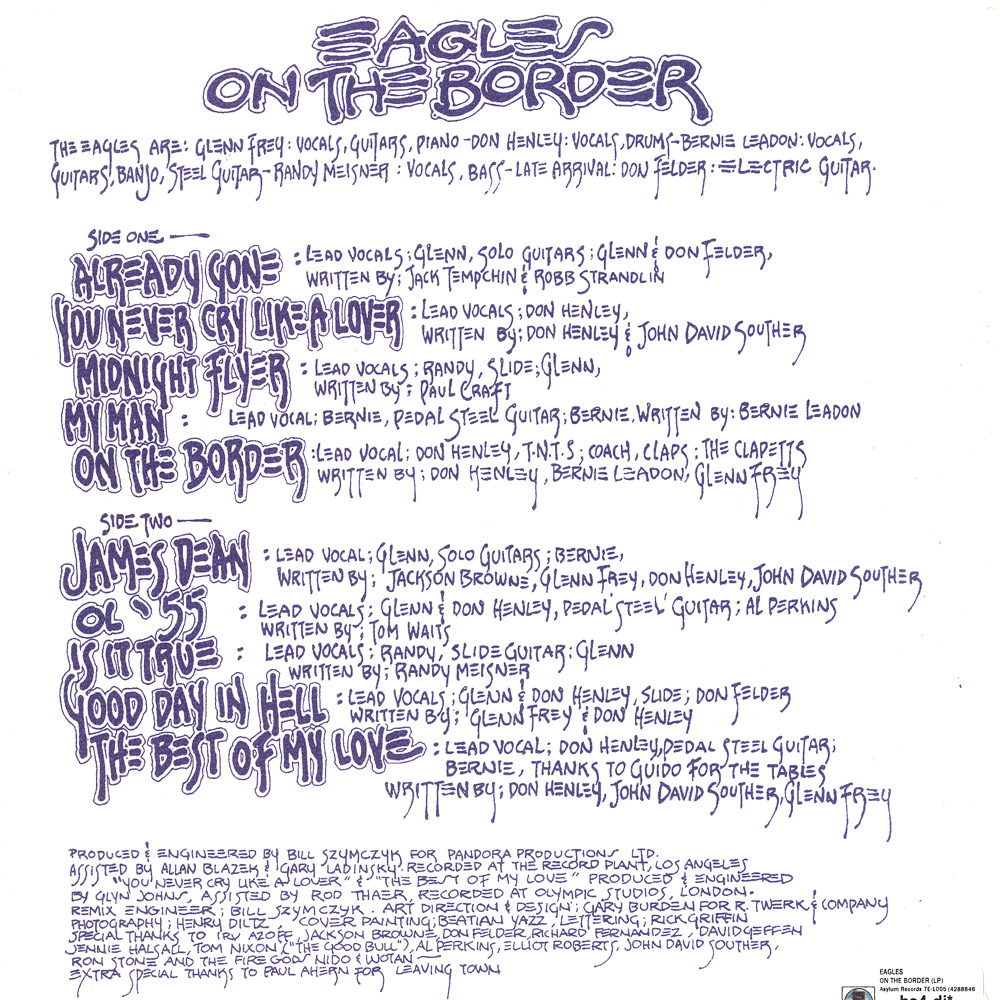 EAGLES
ON THE BORDER
THE EAGLES ARE: GLENN FREY: VOCALS, GUITARS, PIANO-DON HENLEY: VOCALS, DRUMS-BERNIE LEADON: VOCALS,
GUITARS, BANJO, STEEL GUITAR-RANDY MEISNER: VOCALS, BASS-LATE ARRIVAL: DON FELDER: ELECTRIC GUITAR.
SIDE ONE—
ALREADY GONE : LEAD VOCALS; GLENN, SOLO GUITARS; GLENN & DON FELDER,
WRITTEN BY; JACK TEMPCHIN & ROBB STRANDLIN
YOU NEVER CRY LIKE A LOVER : LEAD VOCALS; DON HENLEY,
WRITTEN BY; DON HENLEY & JOHN DAVID SOUTHER
MIDNIGHT FLYER : LEAD VOCALS; RANDY, SLIDE; GLENN,
WRITTEN BY; PAUL CRAFT
MY MAN : LEAD VOCAL; BERNIE, PEDAL STEEL GUITAR; BERNIE, WRITTEN BY: BERNIE LEADON
ON THE BORDER : LEAD VOCAL; DON HENLEY, T.N.T.S; COACH, CLAPS; THE CLAPETTS
WRITTEN BY; DON HENLEY, BERNIE LEADON, GLENN FREY
SIDE TWO—
JAMES DEAN : LEAD VOCAL; GLENN, SOLO GUITARS; BERNIE,
WRITTEN BY; JACKSON BROWNE, GLENN FREY, DON HENLEY, JOHN DAVID SOUTHER
OL '55 : LEAD VOCALS; GLENN & DON HENLEY, PEDAL STEEL GUITAR; AL PERKINS
WRITTEN BY; TOM WAITS
IS IT TRUE : LEAD VOCALS; RANDY, SLIDE GUITAR: GLENN
WRITTEN BY; RANDY MEISNER
GOOD DAY IN HELL : LEAD VOCALS; GLENN & DON HENLEY, SLIDE; DON FELDER
WRITTEN BY; GLENN FREY & DON HENLEY
THE BEST OF MY LOVE : LEAD VOCAL; DON HENLEY, PEDAL STEEL GUITAR;
BERNIE, THANKS TO GUIDO FOR THE TABLES
WRITTEN BY; DON HENLEY, JOHN DAVID SOUTHER, GLENN FREY
PRODUCED & ENGINEERED BY BILL SZYMCZYK FOR PANDORA PRODUCTIONS LTD.
ASSISTED BY ALLAN BLAZEK & GARY LADINSKY. RECORDED AT THE RECORD PLANT, LOS ANGELES
"YOU NEVER CRY LIKE A LOVER" & "THE BEST OF MY LOVE" PRODUCED & ENGINEERED
BY GLYN JOHNS, ASSISTED BY ROD THAER, RECORDED AT OLYMPIC STUDIOS, LONDON.
REMIX ENGINEER; BILL SZYMCZYK. ART DIRECTION & DESIGN; GARY BURDEN FOR R. TWERK & COMPANY
PHOTOGRAPHY; HENRY DILTZ COVER PAINTING; BEATIAN YAZZ, LETTERING; RICK GRIFFIN
SPECIAL THANKS TO IRV AZOFF, JACKSON BROWNE, DON FELDER, RICHARD FERNANDEZ, DAVID GEFFEN
JENNIE HALSALL, TOM NIXON ("THE GOOD BULL"), AL PERKINS, ELLIOT ROBERTS, JOHN DAVID SOUTHER,
RON STONE AND THE FIRE GODS NIDO & WOTAN—
EXTRA SPECIAL THANKS TO PAUL AHERN FOR LEAVING TOWN
EAGLES
ON THE BORDER (LP)
Asylum Records 7E-1005 (4288846